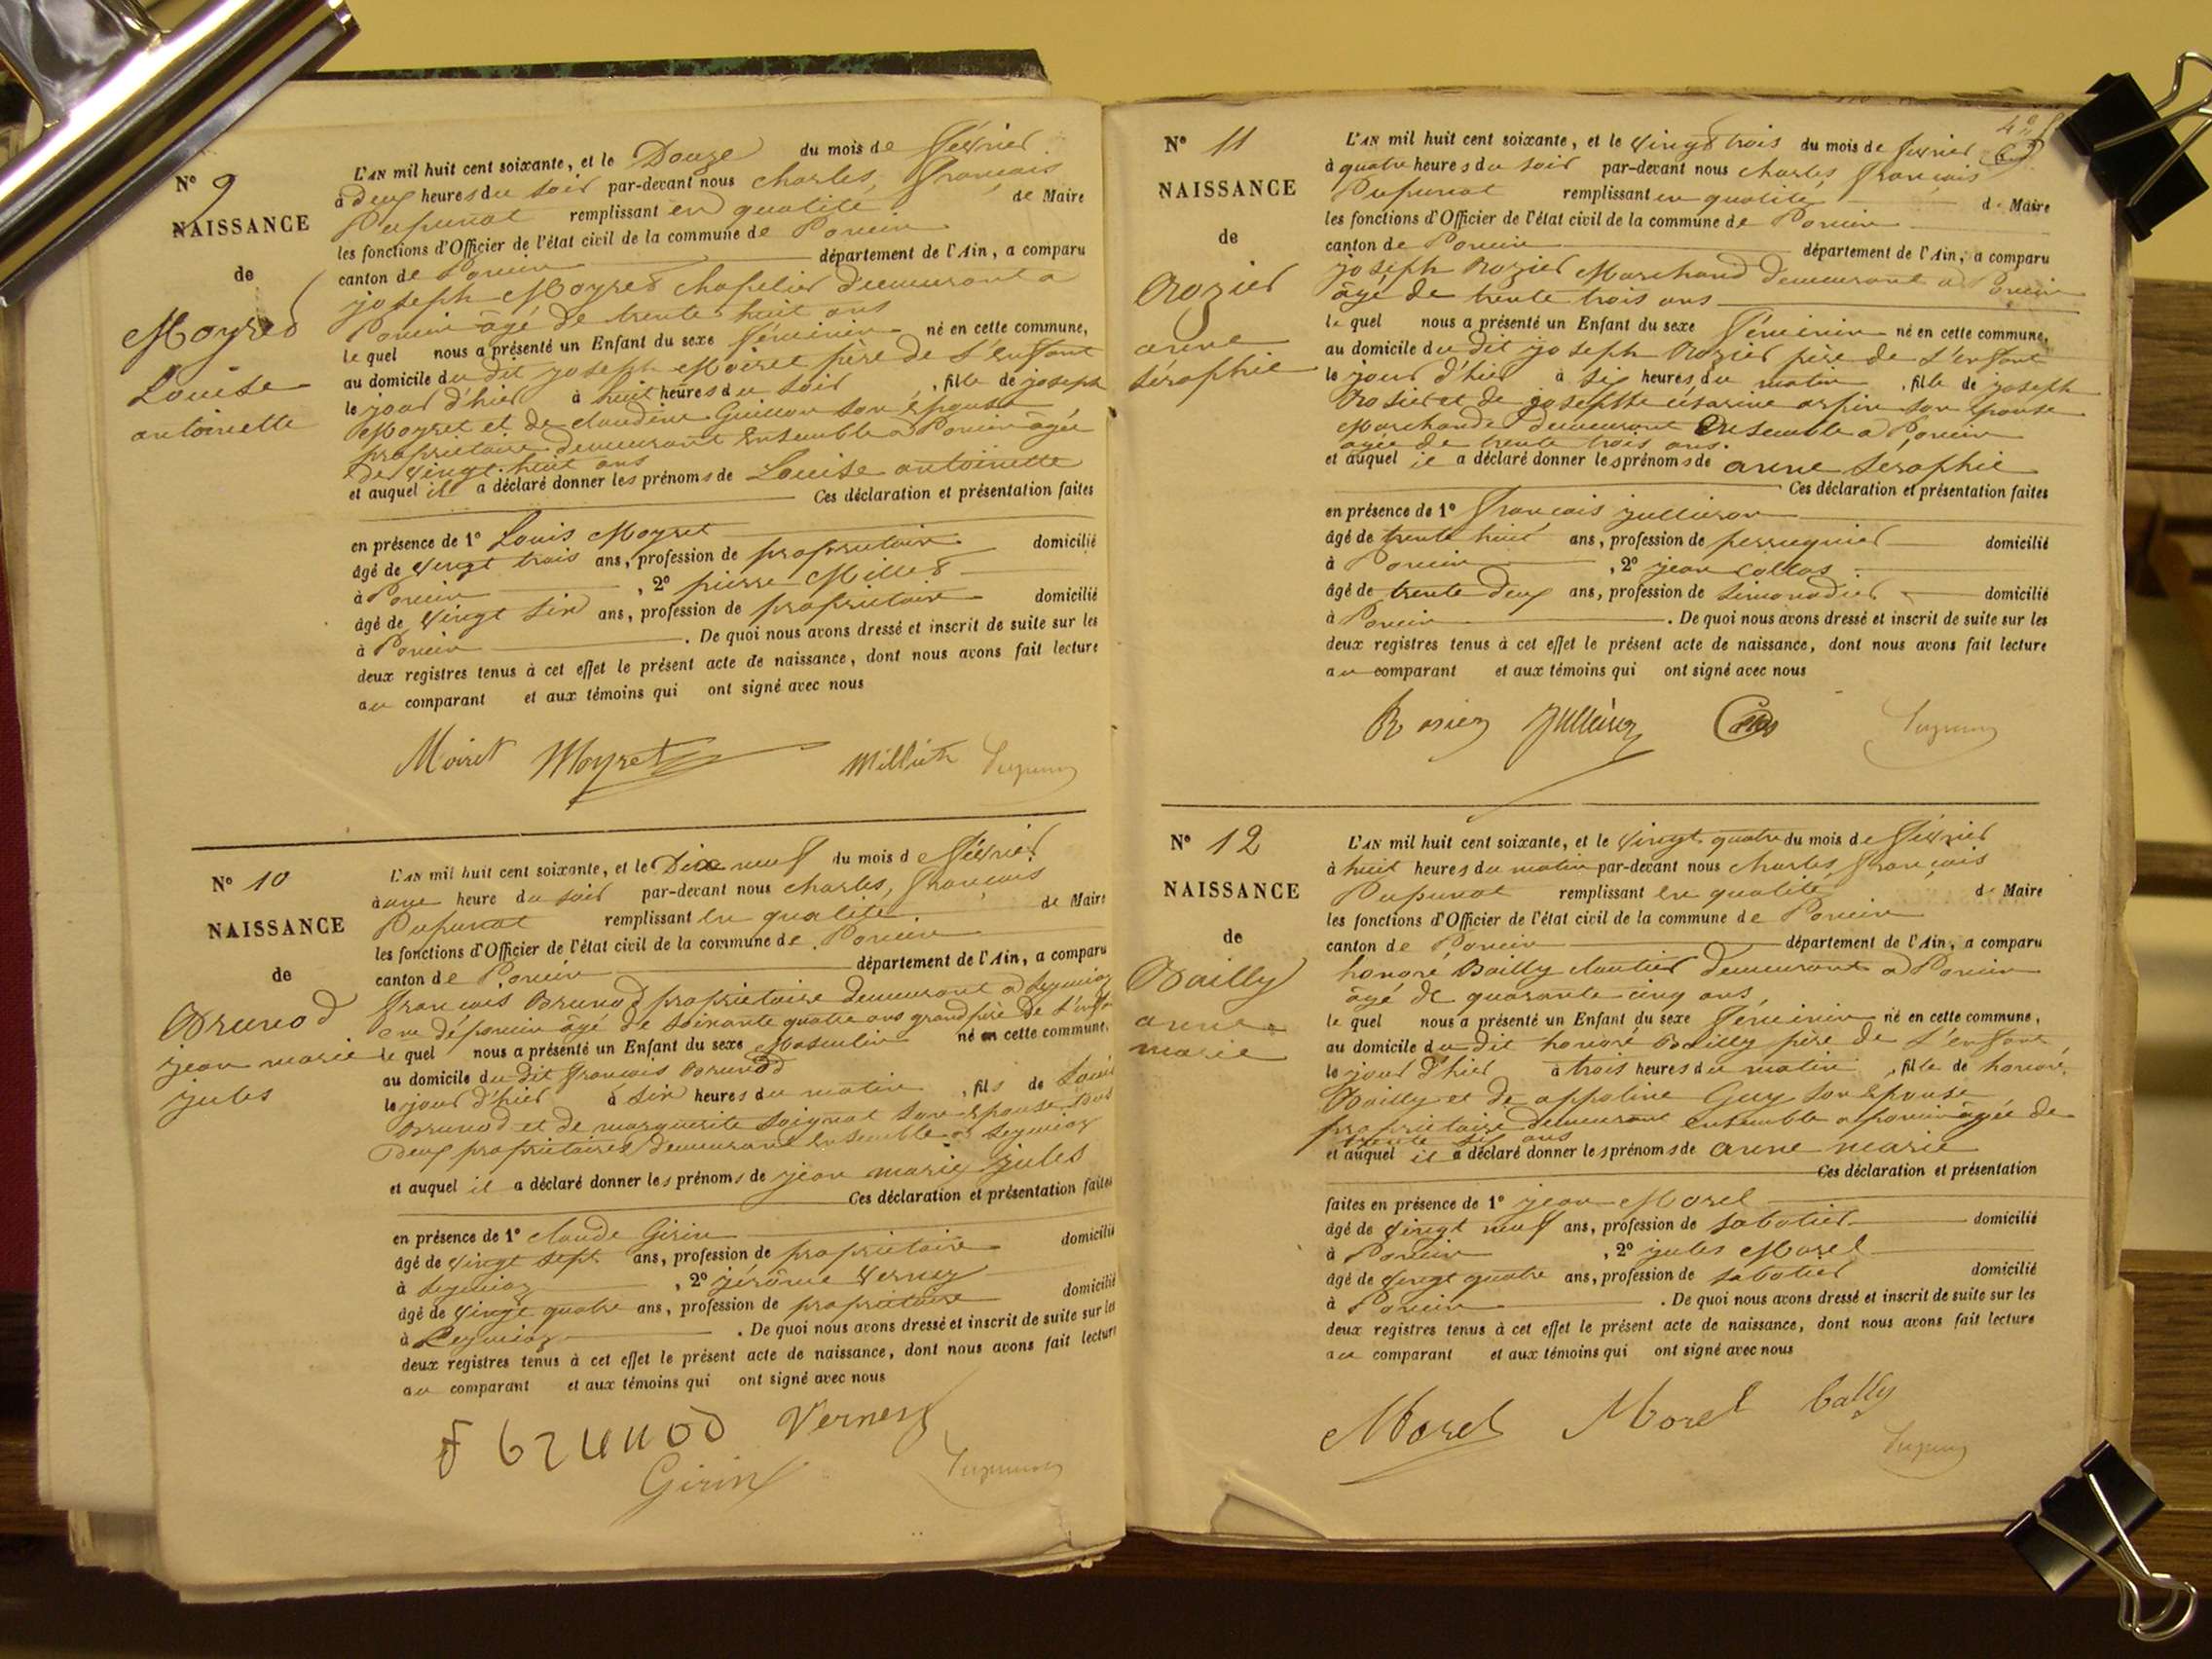 N° 9
NAISSANCE
de
Moyret
Louise
antoinette
L'AN mil huit cent soixante, et le Douze du mois de février
à deux heures du soir par-devant nous charles, françois
Pupunat remplissant en qualité de Maire
les fonctions d'Officier de l'état civil de la commune de Poncin
canton de Poncin département de l'Ain, a comparu
joseph Moyret chapelier demeurant a
Poncin âgé de trente huit ans
lequel nous a présenté un Enfant du sexe féminin né en cette commune,
au domicile du dit joseph Moiret père de l'enfant
le jour d'hier à huit heures du soir, fille de joseph
Moyret et de claudine Guillon son épouse
propriétaire demeurant ensemble a Poncin âgée
de vingt huit ans
et auquel il a déclaré donner les prénoms de Louise antoinette
Ces déclaration et présentation faites
en présence de 1° Louis Moyret
âgé de vingt trois ans, profession de propriétaire domicilié
à Poncin, 2° pierre Millet
âgé de vingt six ans, profession de propriétaire domicilié
à Poncin. De quoi nous avons dressé et inscrit de suite sur les
deux registres tenus à cet effet le présent acte de naissance, dont nous avons fait lecture
au comparant et aux témoins qui ont signé avec nous
Moiret Moyret
N° 10
NAISSANCE
de
Brunod
jean marie
jules
L'AN mil huit cent soixante, et le Dix neuf du mois de février
à une heure du soir par-devant nous charles, françois
Pupunat remplissant en qualité de Maire
les fonctions d'Officier de l'état civil de la commune de Poncin
canton de Poncin département de l'Ain, a comparu
françois Brunod propriétaire demeurant a Leymiaz
âgé de soixante quatre ans grand père de l'enfant
lequel nous a présenté un Enfant du sexe Masculin né en cette commune,
au domicile du dit françois Brunod
le jour d'hier à six heures du matin, fils de Louis
Brunod et de marguerite Soignat son épouse tous
Deux propriétaires demeurant ensemble a Leymiaz
et auquel il a déclaré donner les prénoms de jean marie jules
Ces déclaration et présentation faites
en présence de 1° claude Girin
âgé de vingt sept ans, profession de propriétaire domicilié
à Leymiaz, 2° jérôme Verney
âgé de vingt quatre ans, profession de propriétaire domicilié
à Leymiaz. De quoi nous avons dressé et inscrit de suite sur les
deux registres tenus à cet effet le présent acte de naissance, dont nous avons fait lecture
au comparant et aux témoins qui ont signé avec nous
f brunod Verney
Girin
N° 11
NAISSANCE
de
Rozier
anne
séraphie
L'AN mil huit cent soixante, et le vingt trois du mois de février
à quatre heures du soir par-devant nous charles, françois
Pupunat remplissant en qualité de Maire
les fonctions d'Officier de l'état civil de la commune de Poncin
canton de Poncin département de l'Ain, a comparu
joseph Rozier Marchand demeurant a Poncin
âgé de trente trois ans
lequel nous a présenté un Enfant du sexe féminin né en cette commune,
au domicile du dit joseph Rozier père de l'enfant
le jour d'hier à six heures du matin, fille de joseph
Rosier et de josephte césarine arpin son épouse
Marchande demeurant Ensemble a Poncin
âgée de trente trois ans.
et auquel il a déclaré donner les prénoms de anne séraphie
Ces déclaration et présentation faites
en présence de 1° françois jullieron
âgé de trente huit ans, profession de perruquier domicilié
à Poncin, 2° jean collas
âgé de trente deux ans, profession de limonadier domicilié
à Poncin. De quoi nous avons dressé et inscrit de suite sur les
deux registres tenus à cet effet le présent acte de naissance, dont nous avons fait lecture
au comparant et aux témoins qui ont signé avec nous
Rosier
N° 12
NAISSANCE
de
Bailly
anne
marie
L'AN mil huit cent soixante, et le vingt quatre du mois de février
à huit heures du matin par-devant nous charles, françois
Pupunat remplissant en qualité de Maire
les fonctions d'Officier de l'état civil de la commune de Poncin
canton de Poncin département de l'Ain, a comparu
honoré Bailly cloutier demeurant a Poncin
âgé de quarante cinq ans,
lequel nous a présenté un Enfant du sexe féminin né en cette commune,
au domicile du dit honoré Bailly père de l'enfant
le jour d'hier à trois heures du matin, fille de honoré
Bailly et de appoline Guy son épouse
propriétaire demeurant ensemble a poncin âgée de
trente six ans
et auquel il a déclaré donner les prénoms de anne marie
Ces déclaration et présentation
faites en présence de 1° jean Morel
âgé de vingt neuf ans, profession de sabotier domicilié
à Poncin, 2° jules Morel
âgé de vingt quatre ans, profession de sabotier domicilié
à Poncin. De quoi nous avons dressé et inscrit de suite sur les
deux registres tenus à cet effet le présent acte de naissance, dont nous avons fait lecture
au comparant et aux témoins qui ont signé avec nous
Morel Morel bally